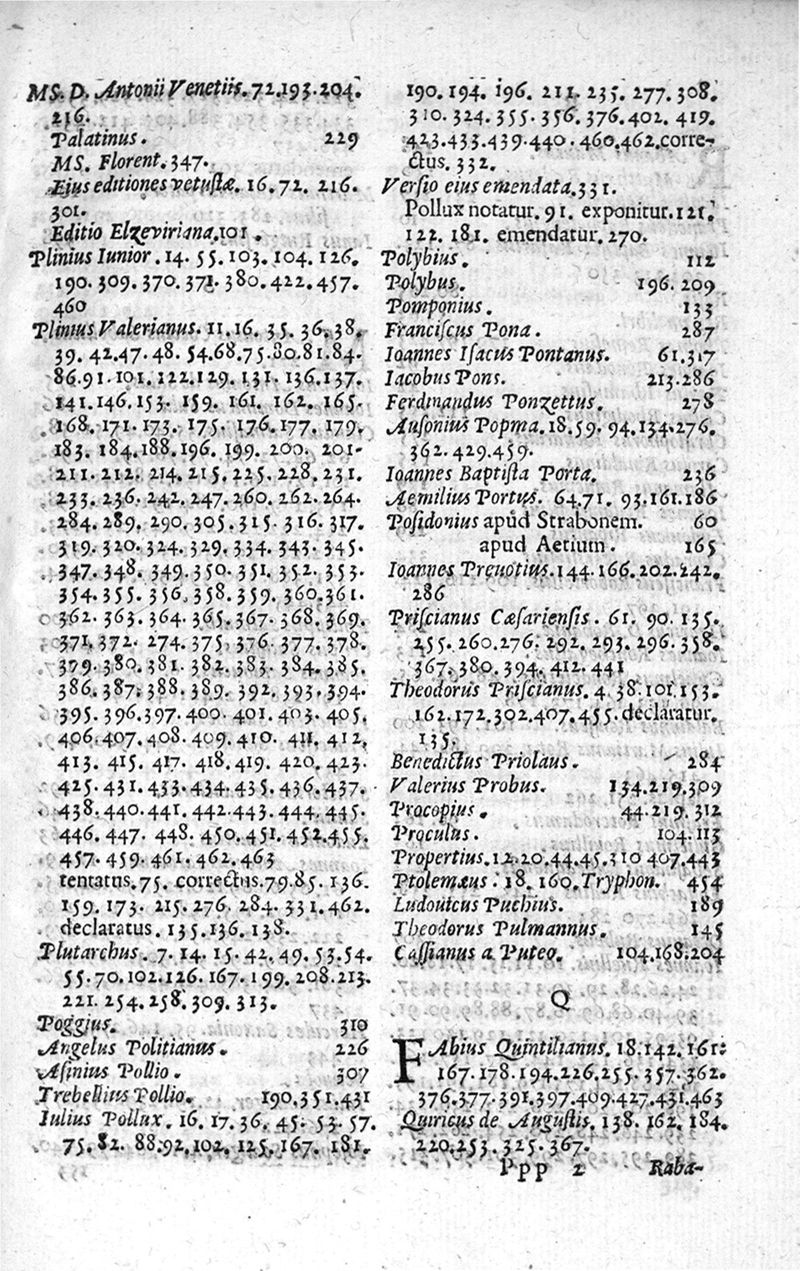 MS. D. Antonii Venetiis. 72.193.204.
216.
Palatinus. 229
MS. Florent. 347.
Ejus editiones vetustæ. 16. 72. 216.
301.
Editio Elzeviriana.101.
Plinius Iunior. 14. 55. 103. 104. 126.
190. 309. 370. 371. 380. 422. 457.
460
Plinius Valerianus. 11. 16. 35. 36. 38.
39. 42. 47. 48. 54. 68. 75. 80. 81. 84.
86. 91. 101. 122. 129. 131. 136. 137.
141. 146. 153. 159. 161. 162. 165.
168. 171. 173. 175. 176. 177. 179.
183. 184. 188. 196. 199. 200. 201.
211. 212. 214. 215. 225. 228. 231.
233. 236. 242. 247. 260. 262. 264.
284. 289. 290. 305. 315. 316. 317.
319. 320. 324. 329. 334. 343. 345.
347. 348. 349. 350. 351. 352. 353.
354. 355. 356. 358. 359. 360. 361.
362. 363. 364. 365. 367. 368. 369.
371. 372. 274. 375. 376. 377. 378.
379. 380. 381. 382. 383. 384. 385.
386. 387. 388. 389. 392. 393. 394.
395. 396. 397. 400. 401. 403. 405.
406. 407. 408. 409. 410. 411. 412.
413. 415. 417. 418. 419. 420. 423.
425. 431. 433. 434. 435. 436. 437.
438. 440. 441. 442. 443. 444. 445.
446. 447. 448. 450. 451. 452. 455.
457. 459. 461. 462. 463
tentatus. 75. correctus. 79. 85. 136.
159. 173. 215. 276. 284. 331. 462.
declaratus. 135. 136. 138.
Plutarchus. 7. 14. 15. 42. 49. 53. 54.
55. 70. 102. 126. 167. 199. 208. 213.
221. 254. 258. 309. 313.
Poggius. 310
Angelus Politianus. 226
Asinius Pollio. 307
Trebellius Pollio. 190. 351. 431
Iulius Pollux. 16. 17. 36. 45. 53. 57.
75. 82. 88. 92. 102. 125. 167. 181.
190. 194. 196. 211. 235. 277. 308.
310. 324. 355. 356. 376. 402. 419.
423. 433. 439. 440. 460. 462. corre-
ctus. 332.
Versio eius emendata. 331.
Pollux notatur. 91. exponitur. 121.
122. 181. emendatur. 270.
Polybius. 112
Polybus. 196. 209
Pomponius. 133
Franciscus Pona. 287
Ioannes Isacus Pontanus. 61. 317
Iacobus Pons. 213. 286
Ferdinandus Ponzettus. 278
Ausonius Popma. 18. 59. 94. 134. 276.
362. 429. 459.
Ioannes Baptista Porta. 236
Aemilius Portus. 64. 71. 93. 161. 186
Posidonius apud Strabonem. 60
apud Aetium. 165
Ioannes Prevotius. 144. 166. 202. 242.
286
Priscianus Cæsariensis. 61. 90. 135.
255. 260. 276. 292. 293. 296. 358.
367. 380. 394. 412. 441
Theodorus Priscianus. 4. 38. 101. 153.
162. 172. 302. 407. 455. declaratur.
135.
Benedictus Priolaus. 284
Valerius Probus. 134. 219. 309
Procopius. 44. 219. 312
Proculus. 104. 113
Propertius. 12. 20. 44. 45. 310 407. 443
Ptolemæus. 18. 160. Tryphon. 454
Ludouicus Puchius. 189
Theodorus Pulmannus. 145
Cassianus a Puteo. 104. 168. 204
Q
FAbius Quintilianus. 18. 142. 161.
167. 178. 194. 226. 255. 357. 362.
376. 377. 391. 397. 409. 427. 431. 463
Quiricus de Augustis. 138. 162. 184.
220. 253. 325. 367.
Ppp 2 Raba-